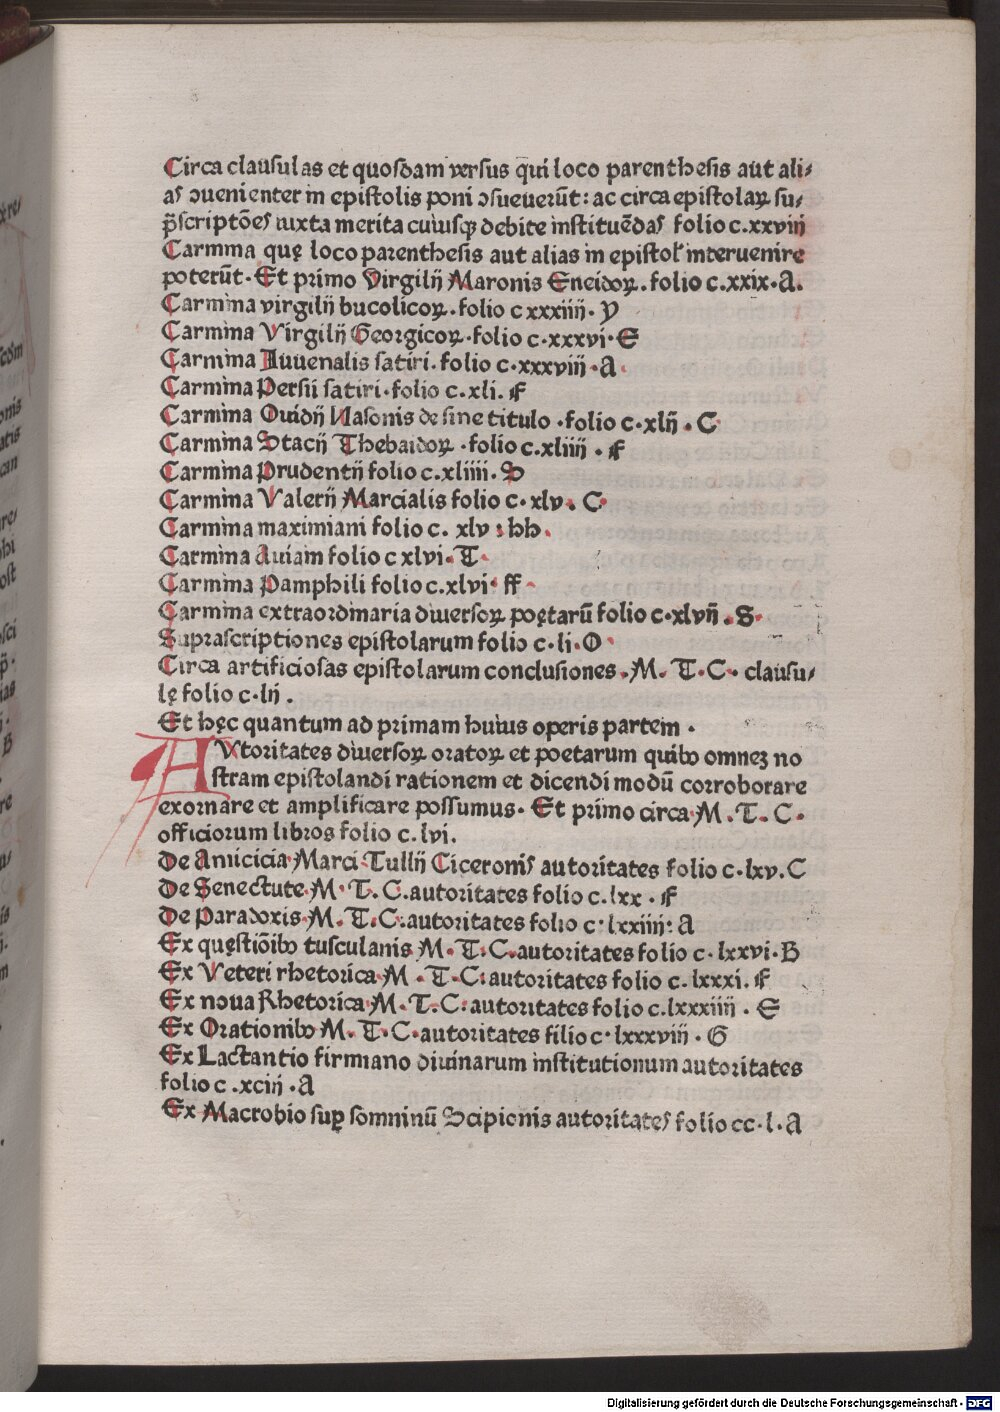 Circa clausulas et quosdam versus q̄ui loco parenthesis aut ali⸗
as ɔuenienter in epistolis poni ɔsueuerūt: ac circa epistolaꝝ su⸗
p̄scriptōes iuxta merita cuiusqꝫ debite instituēdas folio c.xxviij
Carmina quę loco parenthesis aut alias in epistol' interuenire
poterūt. Et primo Virgilij Maronis Eneidoꝝ. folio c.xxix.A.
Carmina virgilij bucolicoꝝ. folio c xxxiiij. y
Carmina Virgilij Georgicoꝝ. folio c.xxxvi. E
Carmina Iuuenalis satiri. folio c.xxxviij .A.
Carmina Persii satiri. folio c.xli. F
Carmina Ouidij Nasonis de sine titulo .folio c.xlij . C
Carmina Stacij Thebaidoꝝ .folio c.xliiij . F
Carmina Prudentij folio c.xliiii. D
Carmina Valerij Marcialis folio c.xlv. C
Carmina maximiani folio c. xlv : hh.
Carmina Auiani folio c xlvi. T.
Carmina Pamphili folio c.xlvi. ff
Carmina extraordinaria diuersoꝝ poętarū folio c.xlvij .S.
Suprascriptiones epistolarum folio c.li.O
Circa artificiosas epistolarum conclusiones .M. T. C. clausu⸗
lę folio c.lij .
Et hęc quantum ad primam huius operis partem .
AVtoritates diuersoꝝ oratoꝝ et poetarum quibꝰ omneꝫ no
stram epistolandi rationem et dicendi modū corroborare
exornare et amplificare possumus. Et primo circa M. T. C.
officiorum libros folio c.lvi.
De Amicicia Marci Tullij Ciceronis autoritates folio c.lxv.C
De Senectute M. T. C.autoritates folio c.lxx . F
De Paradoxis M. T. C:autoritates folio c.lxxiiij: A
Ex quęstiōibꝰ tusculanis M. T. C.autoritates folio c.lxxvi.B
Ex Veteri rhetorica M . T.C:autoritates folio c.lxxxi. F
Ex noua Rhetorica M. T.C:autoritates folio c.lxxxiiij . E
Ex Orationibꝰ M. T. C.autoritates filio c.lxxxviij . G
Ex Lactantio firmiano diuinarum institutionum autoritates
folio c .xciij .A
Ex Macrobio suꝑ somninū Scipionis autoritates folio cc.l.A
Digitalisierung gefördert durch die Deutsche Forschungsgemeinschaft - DFG